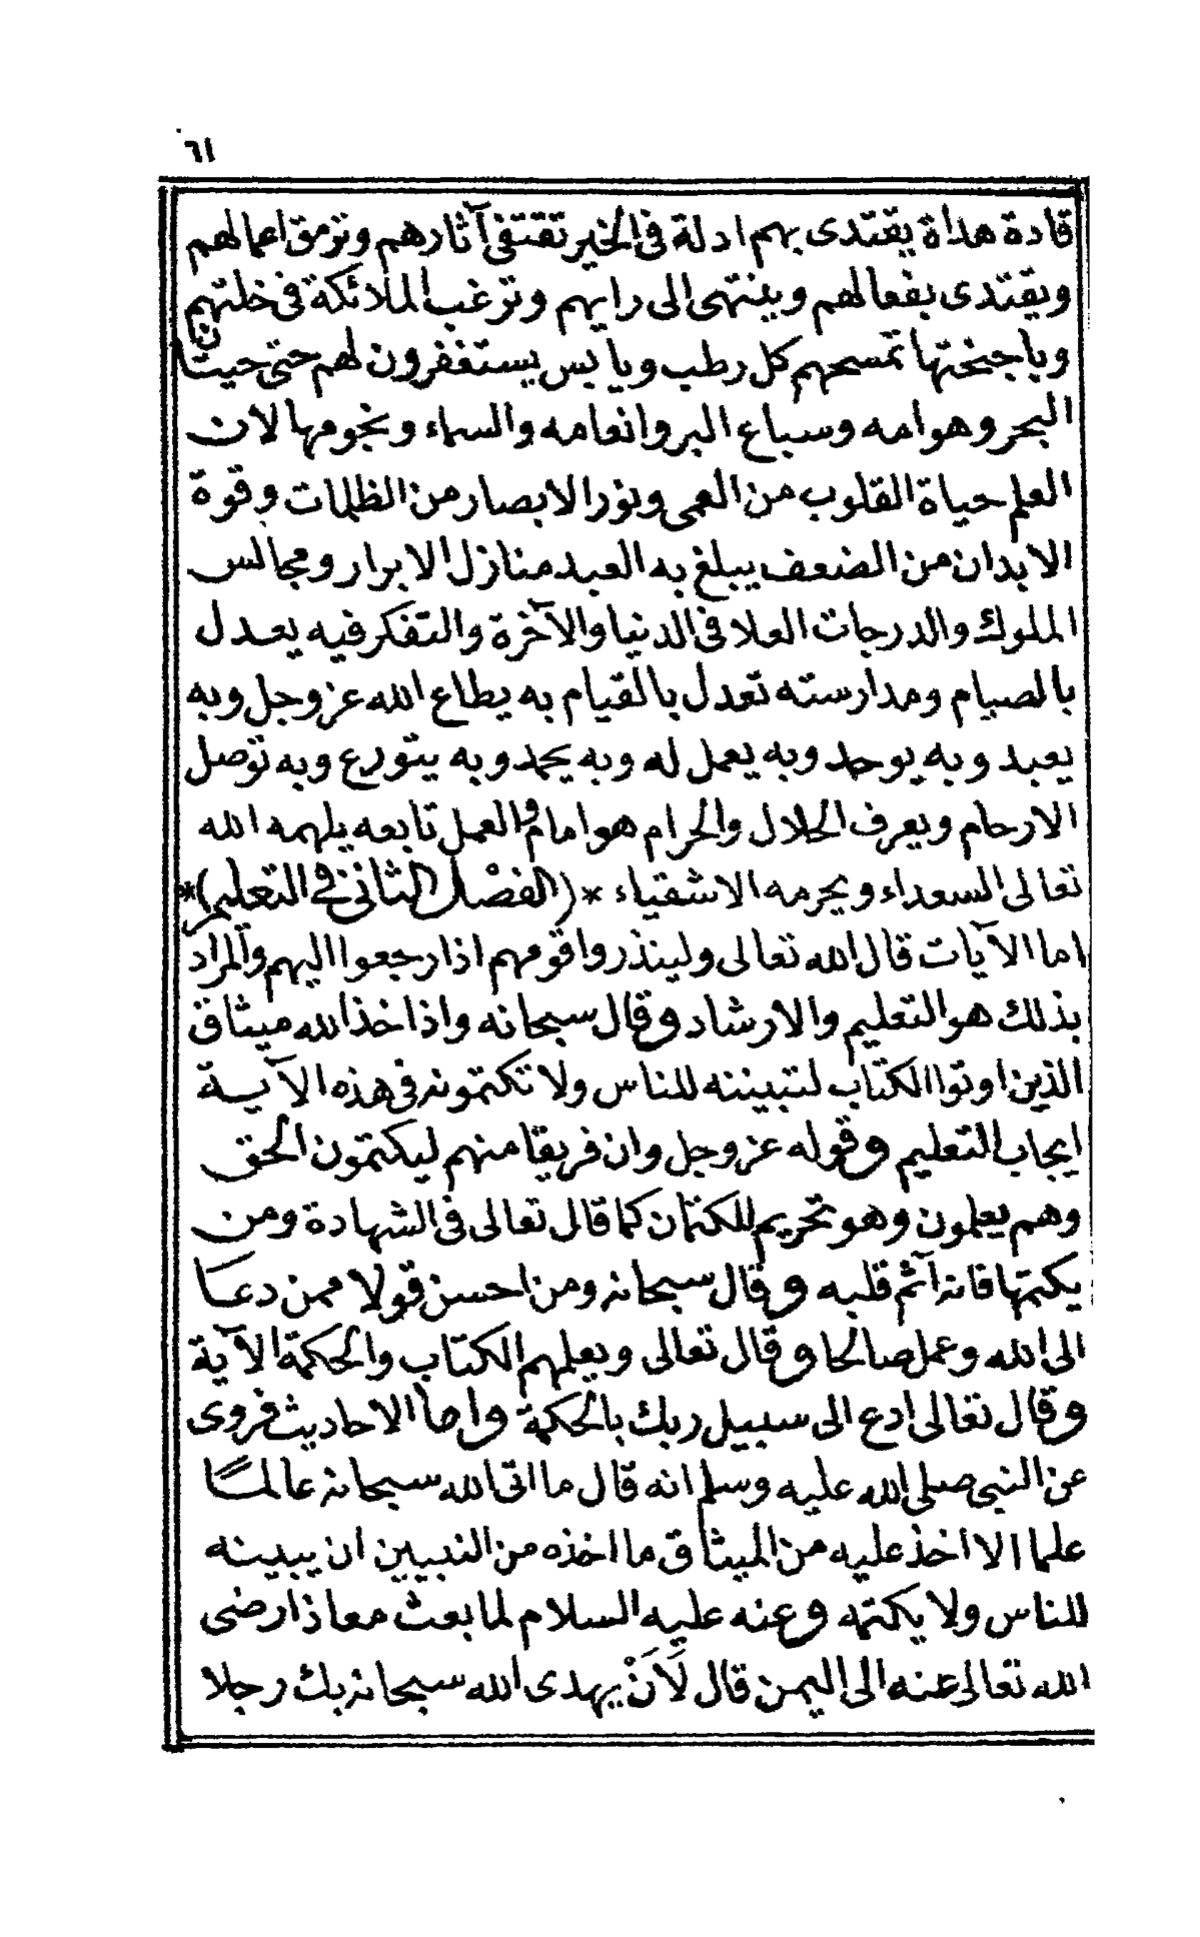 ٦١
قادة هداة يقتدى بهم ادلة فى الخير تقتفى آثارهم وترمق اعمالهم
ويقتدى بفعالهم وينتهى الى رايهم وترغب الملائكة فى خلتهم
وباجنحتها تمسحهم كل رطب ويابس يستغفرون لهم حتى حيتان
البحر وهوامه وسباع البر وانعامه والسماء ونجومها لان
العلم حياة القلوب من العمى ونور الابصار من الظلمات وقوة
الابدان من الضعف يبلغ به العبد منازل الابرار ومجالس
الملوك والدرجات العلا فى الدنيا والآخرة والتفكر فيه يعدل
بالصيام ومدارسته تعدل بالقيام به يطاع الله عز وجل وبه
يعبد وبه يوحد وبه يعمل له وبه يحمد وبه يتورع وبه توصل
الارحام ويعرف الحلال والحرام هو امام والعمل تابعه يلهمه الله
تعالى السعداء ويحرمه الاشقياء *(الفصل الثانى فى التعليم)*
اما الآيات قال الله تعالى ولينذروا قومهم اذا رجعوا اليهم والمراد
بذلك هو التعليم والارشاد وقال سبحانه واذ اخذ الله ميثاق
الذين اوتوا الكتاب لتبيننه للناس ولا تكتمونه فى هذه الآية
ايجاب التعليم وقوله عز وجل وان فريقا منهم ليكتمون الحق
وهم يعلمون وهو تحريم للكتمان كما قال تعالى فى الشهادة ومن
يكتمها فانه آثم قلبه وقال سبحانه ومن احسن قولا ممن دعا
الى الله وعمل صالحا وقال تعالى ويعلمهم الكتاب والحكمة الآية
وقال تعالى ادع الى سبيل ربك بالحكمة واما الاحاديث فروى
عن النبى صلى الله عليه وسلم انه قال ما اتى الله سبحانه عالمًا
علما الا اخذ عليه من الميثاق ما اخذه من النبيين ان يبينه
للناس ولا يكتمه وعنه عليه السلام لما بعث معاذا رضى
الله تعالى عنه الى اليمن قال لَأَنْ يهدى الله سبحانه بك رجلا